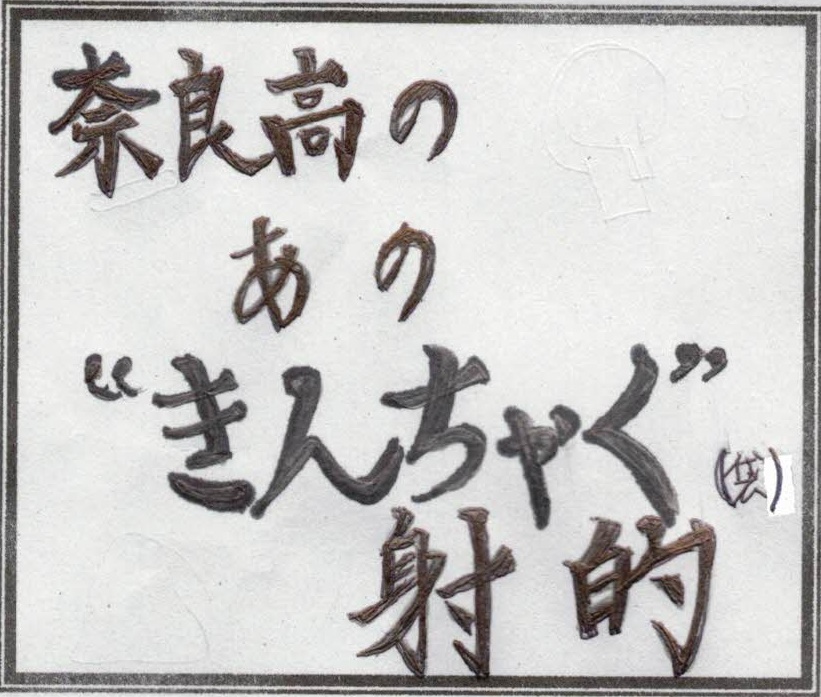 奈良高の
あの
“きんちゃく”
射的